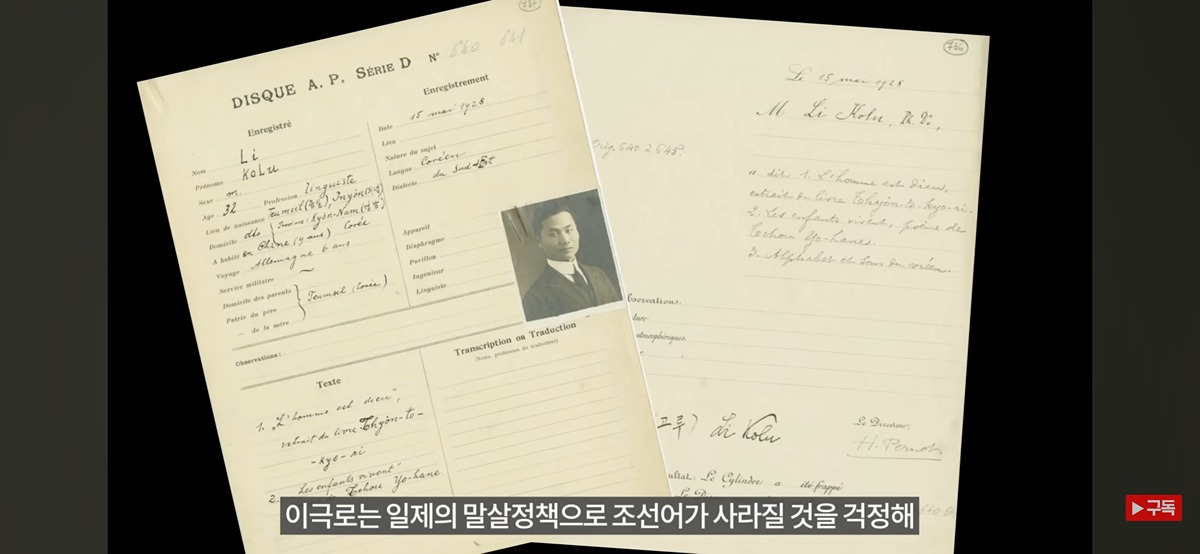 DISQUE A. P. SÉRIE D N° 640 641
Enregistré
Nom Li
Prénoms Kolu
Sexe m.
Age 32 Profession linguiste
Lieu de naissance Teumsil
Domicile dès Province: Kyón-Nam
A habité en Chine (9 ans) Corée
Voyage Allemagne 6 ans
Service militaire —
Domicile des parents
Patrie du père Teumsil (Corée)
— de la mère
Observations:
Enregistrement
Date 15 mai 1928
Lieu
Nature du sujet
Langue Coréen
Dialecte du Sud-Est
Appareil
Diaphragme
Pavillon
Ingénieur
Linguiste
Texte
1. "L'homme est dieu",
extrait du livre Thyón-to-
-kyo-ri
2. "Les enfants vivent"
Tchou Yo-hane
Transcription ou Traduction
(Nom, profession du traducteur)
734
Le 15 mai 1928
M Li Kolu,
Orig. 640 à 645.
" dit 1. L'homme est dieu,
extrait du livre Thyón-to-kyo-ri.
2. Les enfants vivent, poème de
Tchou Yo-hane.
3. Alphabet et sons du coréen.
bservations:
ture:
tmosphériques
고루) Li Kolu
Le Directeur:
H. Pernot
sultat. Le Cylindre a été frappé
이극로는 일제의 말살정책으로 조선어가 사라질 것을 걱정해
구독